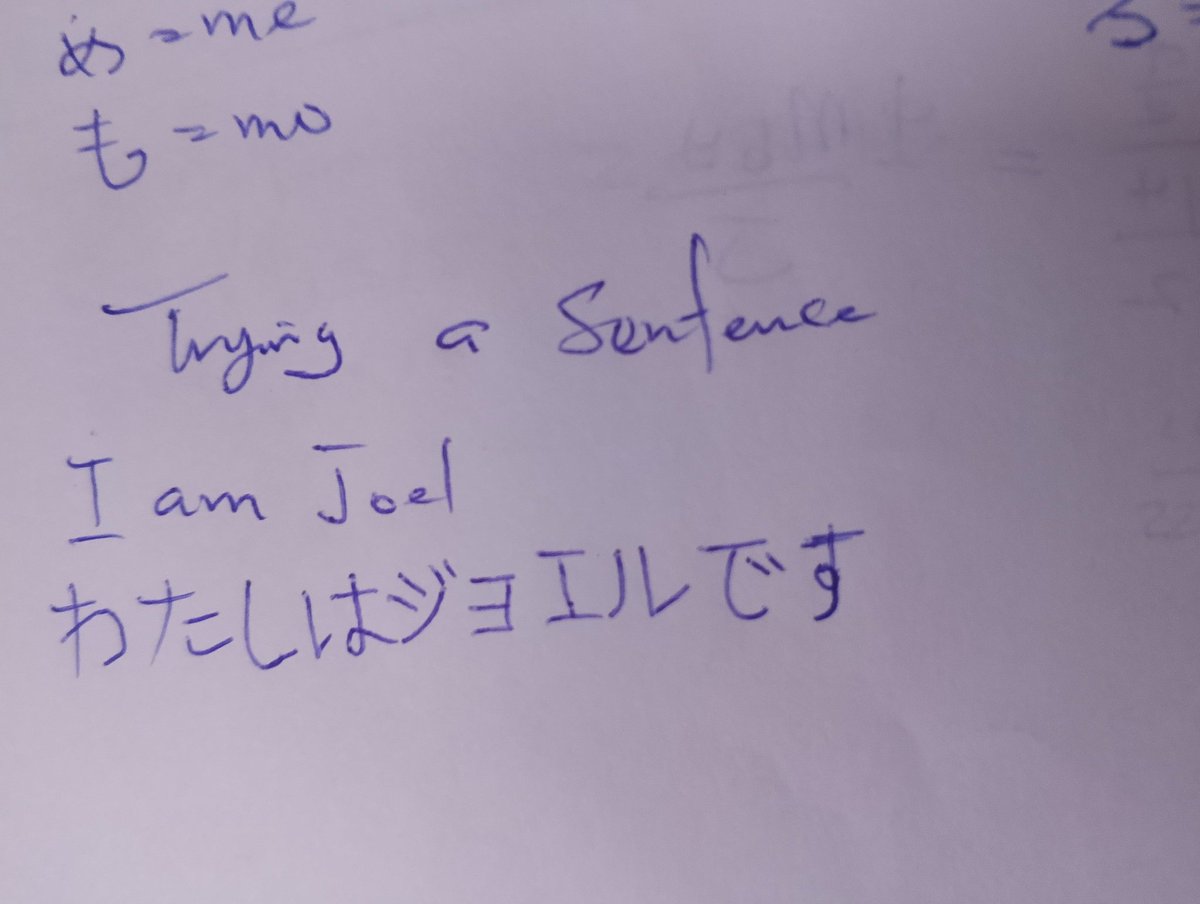 め = me
も = mo
Trying a Sentence
I am Joel
わたしはジョエルです